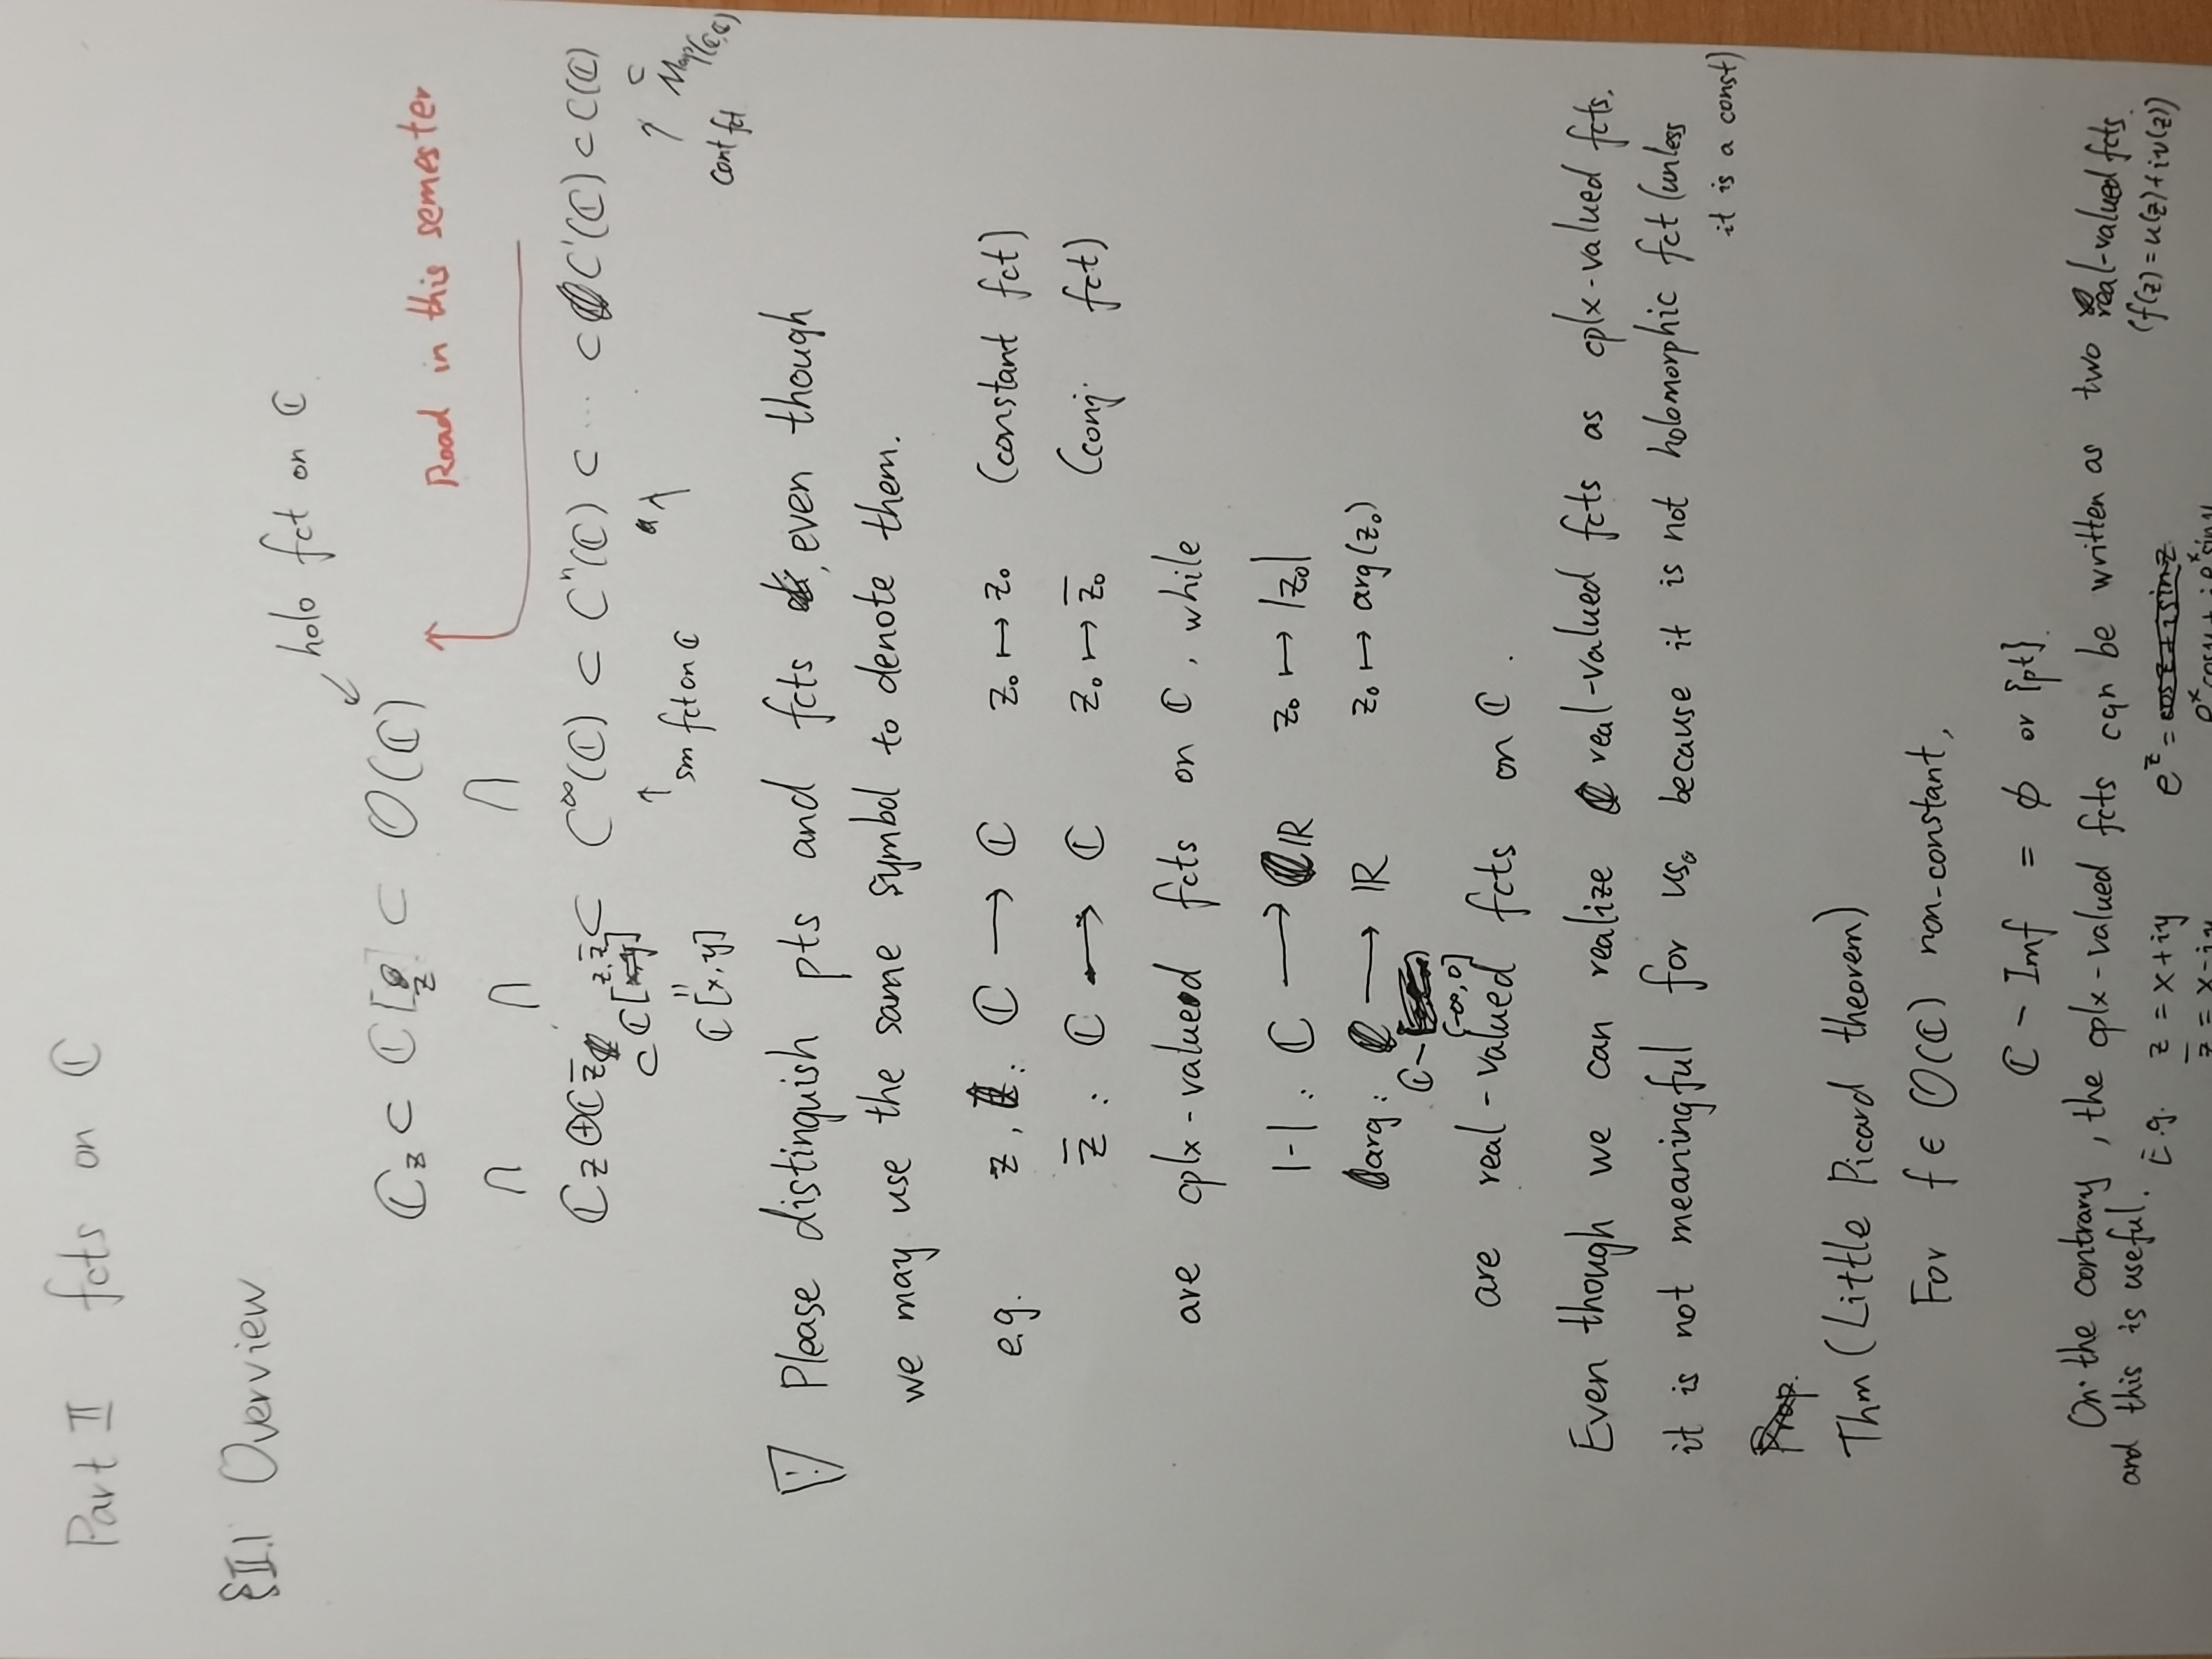 Part II fcts on ℂ
§II.1 Overview
holo fct on ℂ
ℂz ⊂ ℂ[z] ⊂ O(ℂ)
Road in this semester
∩ ∩ ∩
ℂz ⊕ ℂz̄ ⊂ ℂ[z, z̄] ⊂ C^∞(ℂ) ⊂ Cⁿ(ℂ) ⊂ ... ⊂ C¹(ℂ) ⊂ C(ℂ)
⊂ Map(ℂ,ℂ)
॥
ℂ[x, y]
↑ sm fct on ℂ
↑ cont fct
! Please distinguish pts and fcts, even though
we may use the same symbol to denote them.
e.g. z, : ℂ → ℂ z₀ ↦ z₀ (constant fct)
z̄ : ℂ → ℂ z₀ ↦ z̄₀ (conj. fct)
are cplx-valued fcts on ℂ, while
|-| : ℂ → ℝ z₀ ↦ |z₀|
arg : ℂ - (-∞, 0] → ℝ z₀ ↦ arg(z₀)
are real-valued fcts on ℂ.
Even though we can realize real-valued fcts as cplx-valued fcts,
it is not meaningful for us, because it is not holomorphic fct (unless
it is a const)
Prop.
Thm (Little Picard theorem)
For f ∈ O(ℂ) non-constant,
ℂ - Imf = ϕ or {pt}.
On the contrary, the cplx-valued fcts can be written as two real-valued fcts.
and this is useful. (f(z) = u(z) + iv(z))
E.g. z = x + iy e^z = cosz + isinz
z̄ = x - iy e^x cosy + ie^x siny